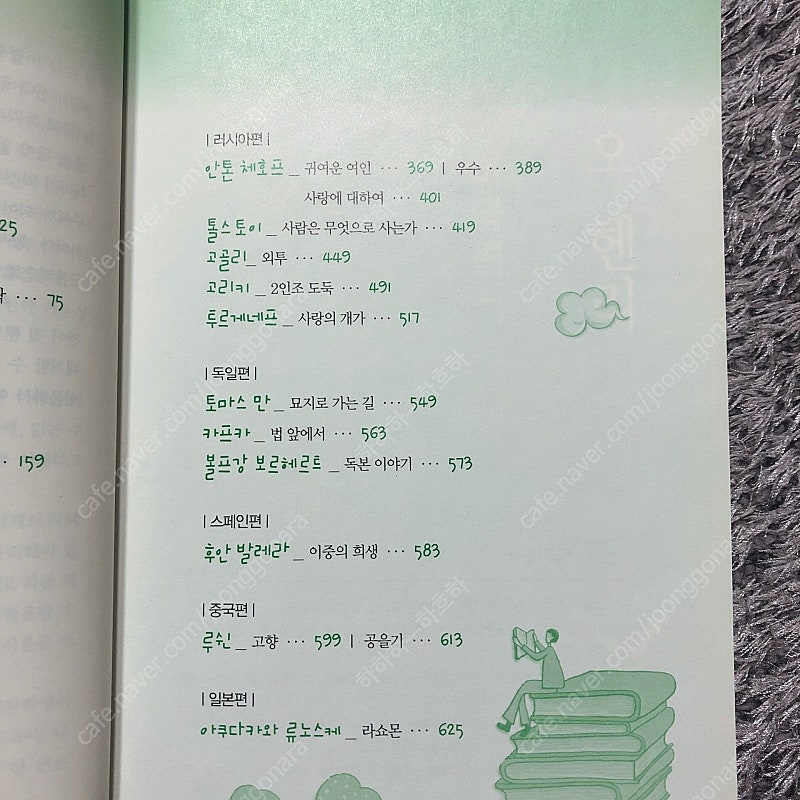 25
75
159
|러시아편|
안톤 체호프 _ 귀여운 여인 ··· 369 | 우수 ··· 389
사랑에 대하여 ··· 401
톨스토이 _ 사람은 무엇으로 사는가 ··· 419
고골리 _ 외투 ··· 449
고리키 _ 2인조 도둑 ··· 491
투르게네프 _ 사랑의 개가 ··· 517
|독일편|
토마스 만 _ 묘지로 가는 길 ··· 549
카프카 _ 법 앞에서 ··· 563
볼프강 보르헤르트 _ 독본 이야기 ··· 573
|스페인편|
후안 발레라 _ 이중의 희생 ··· 583
|중국편|
루쉰 _ 고향 ··· 599 | 공을기 ··· 613
|일본편|
아쿠다카와 류노스케 _ 라쇼몬 ··· 625
cafe.naver.com/joonggonara
하호하